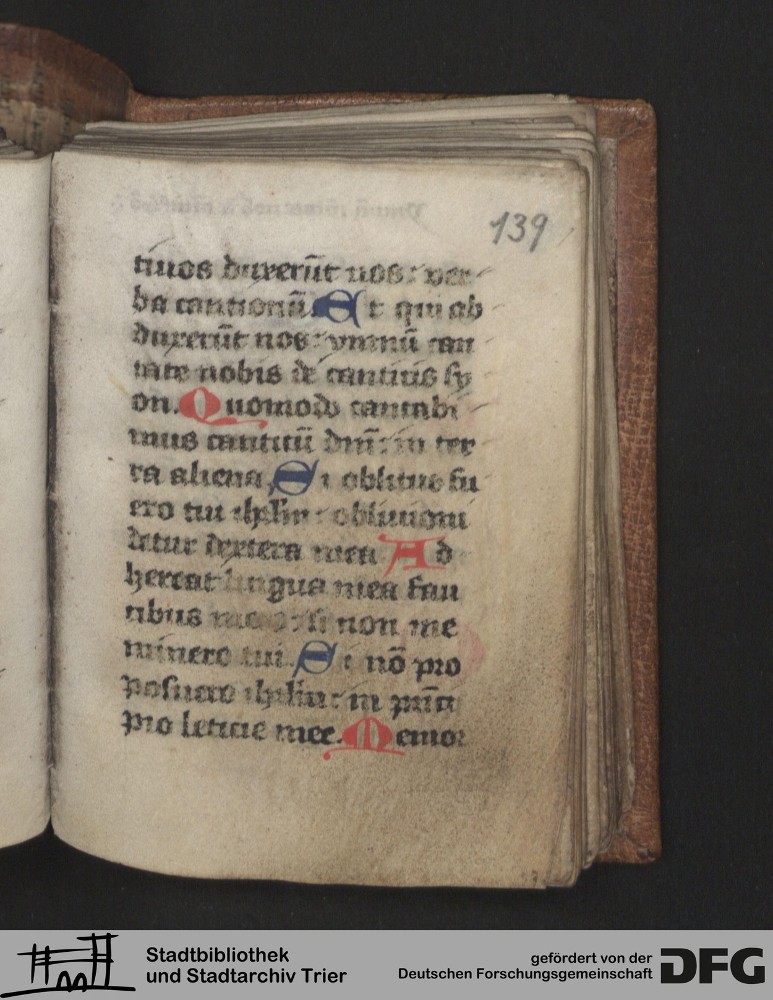 139
tiuos duxerūt nos : ver
ba cantionū. Et qui ab
duxerūt nos : ymnū can
tate nobis de canticis sy
on. Quomodo cantabi
mus canticū dnī : in ter
ra aliena. Si oblitus fu
ero tui ihrlm : obliuioni
detur dextera mea. Ad
hereat lingua mea fau
cibus meis : si non me
minero tui. Si nō pro
posuero ihrlm : in prīci
pio leticie mee. Memor
Stadtbibliothek
und Stadtarchiv Trier
gefördert von der
Deutschen Forschungsgemeinschaft
DFG